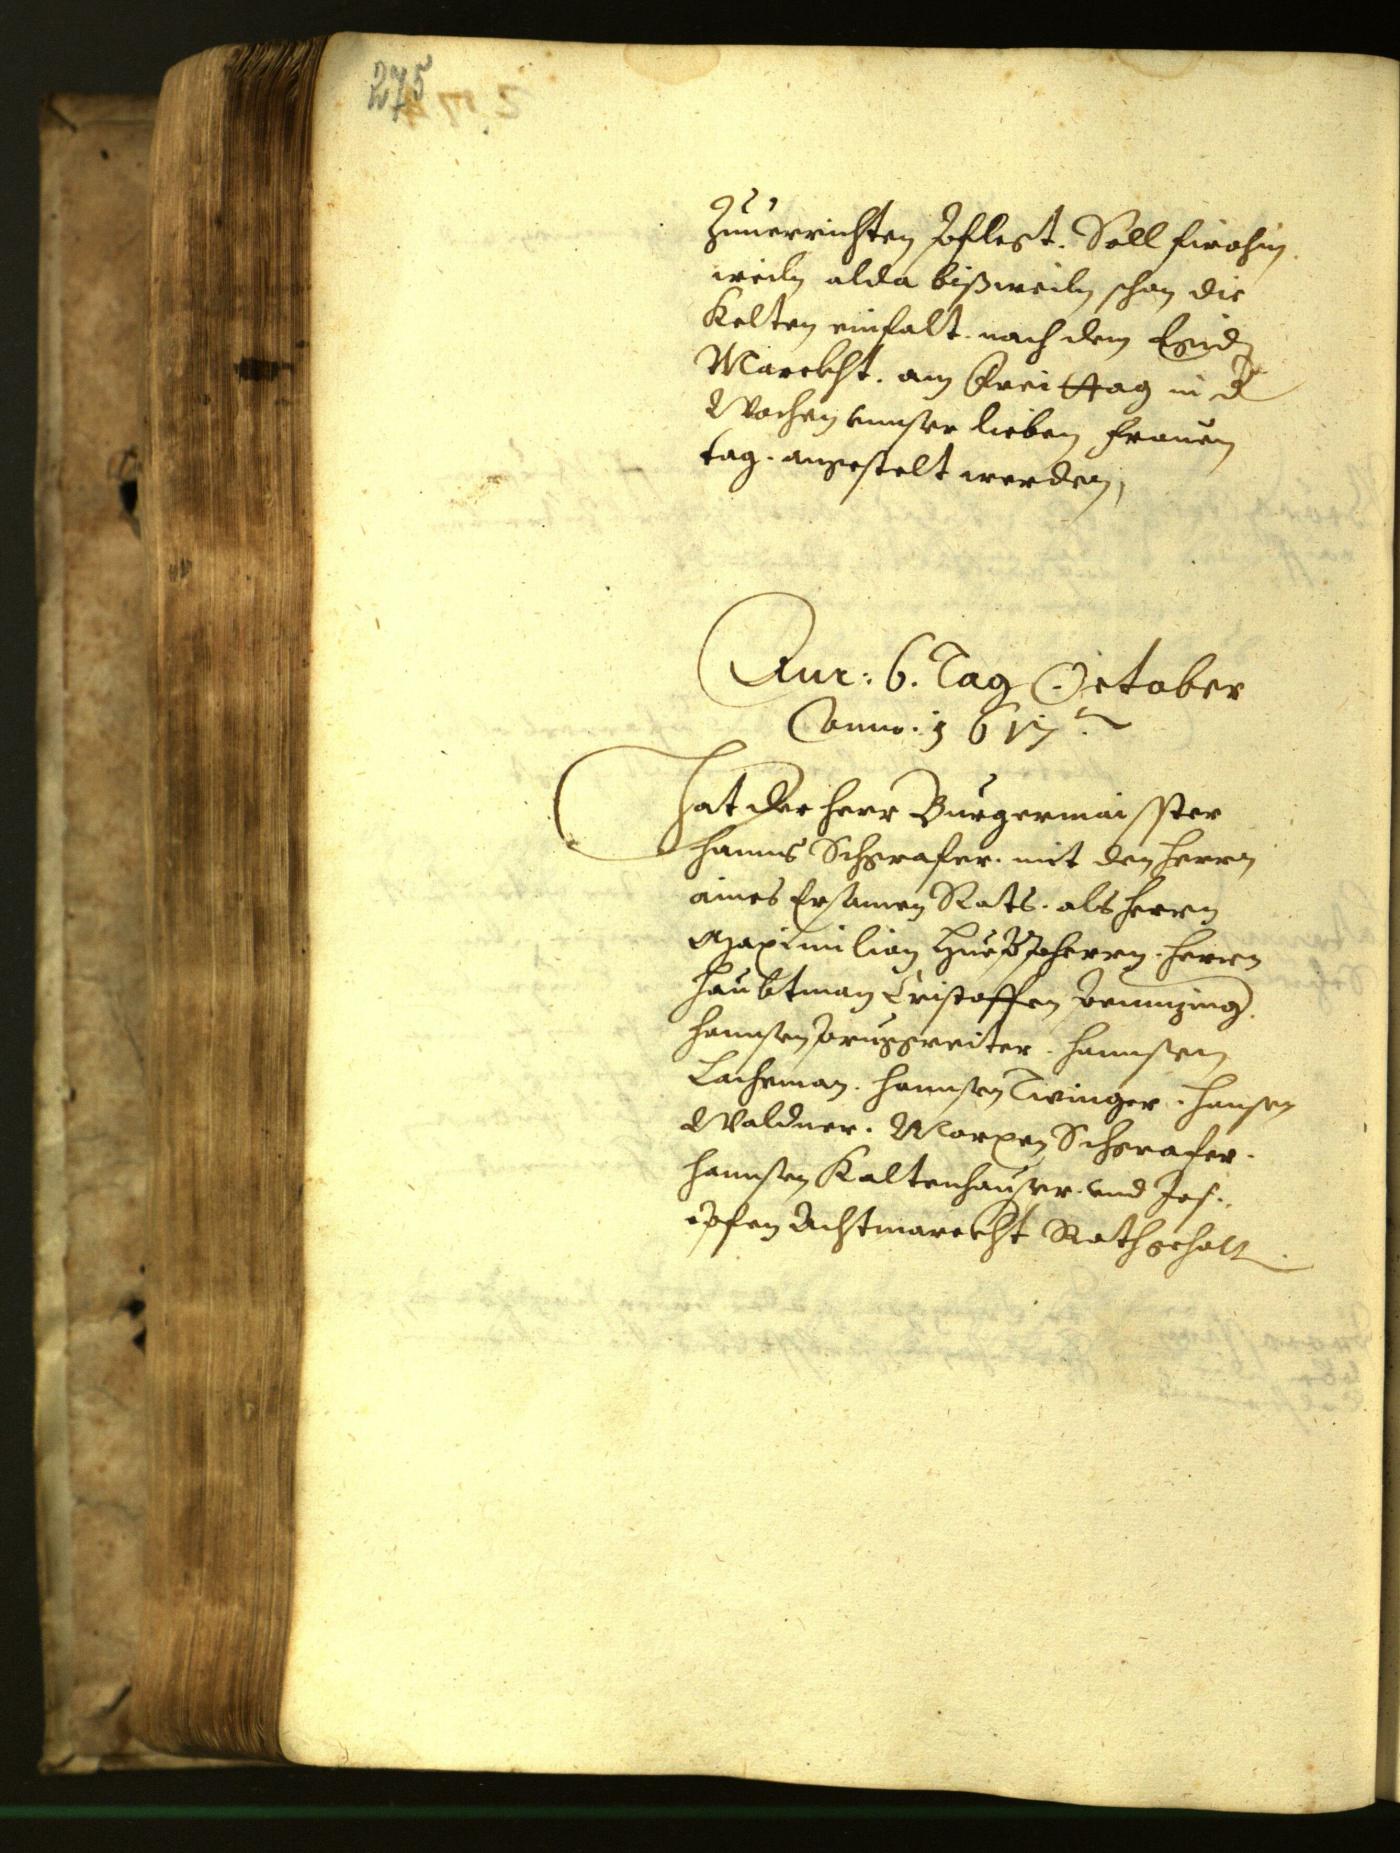 275
Zuuerrichten pflegt. Soll firohin
weiln alda bißweiln schon die
Kelten einfalt. nach dem Egidj
Marckht. am Freittag in d
Wochen vnnser lieben Frauen
tag. angestelt werden,
Den: 6. Tag October
Anno: 1617
Hat der herr Burgermaisster
Hanns Schgrafer. mit den herrn
aines Ersamen Rats. als herrn
Maximilian Hueb herrn. herrn
Haubtman Cristoffen
Hannsen Prugreiter. Hannsen
Lachman. Hannsen Twinger. Hansen
Waldner. Marxen Schgrafer.
Hannsen Kaltenhauser. vnd Jos:
epfen Achtmarckht Rath gehalt